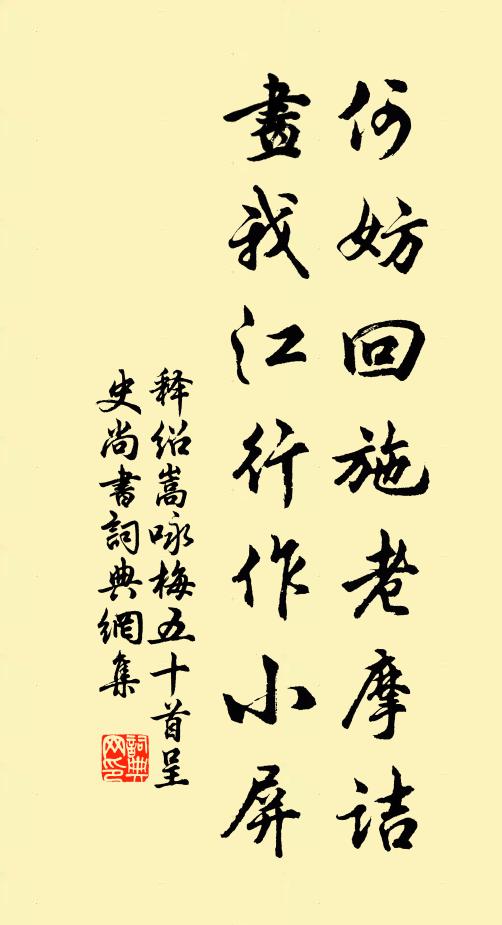 何妨回施老摩詰
畫我江行作小屏
释绍嵩咏梅五十首呈
史尚書詞典網集
詞典
网印